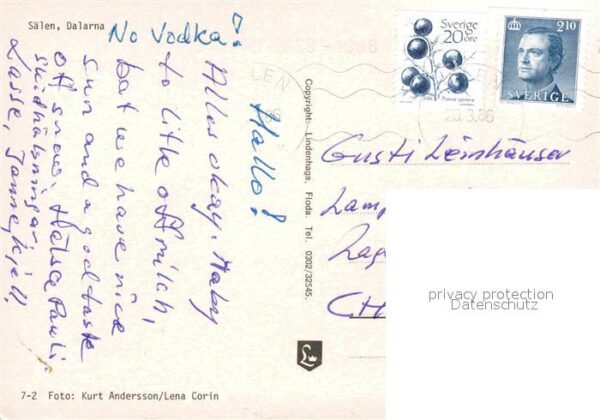 Sälen, Dalarna
No Vodka?
Hallo!
Alles okay. Maby
to litle off milch,
but we have nice
sun and a god taste
off snow. Hälsa Pauli
skidhälsningar,
Lasse, Janne, Kjell,
Copyright: Lindenhags. Floda. Tel. 0302/32545.
Sverige
20 öre
Prunus spinosa
210
SVERIGE
20.3.86
Gusti
Lamp
Lage
CH
privacy protection
Datenschutz
L
7-2 Foto: Kurt Andersson/Lena Corin